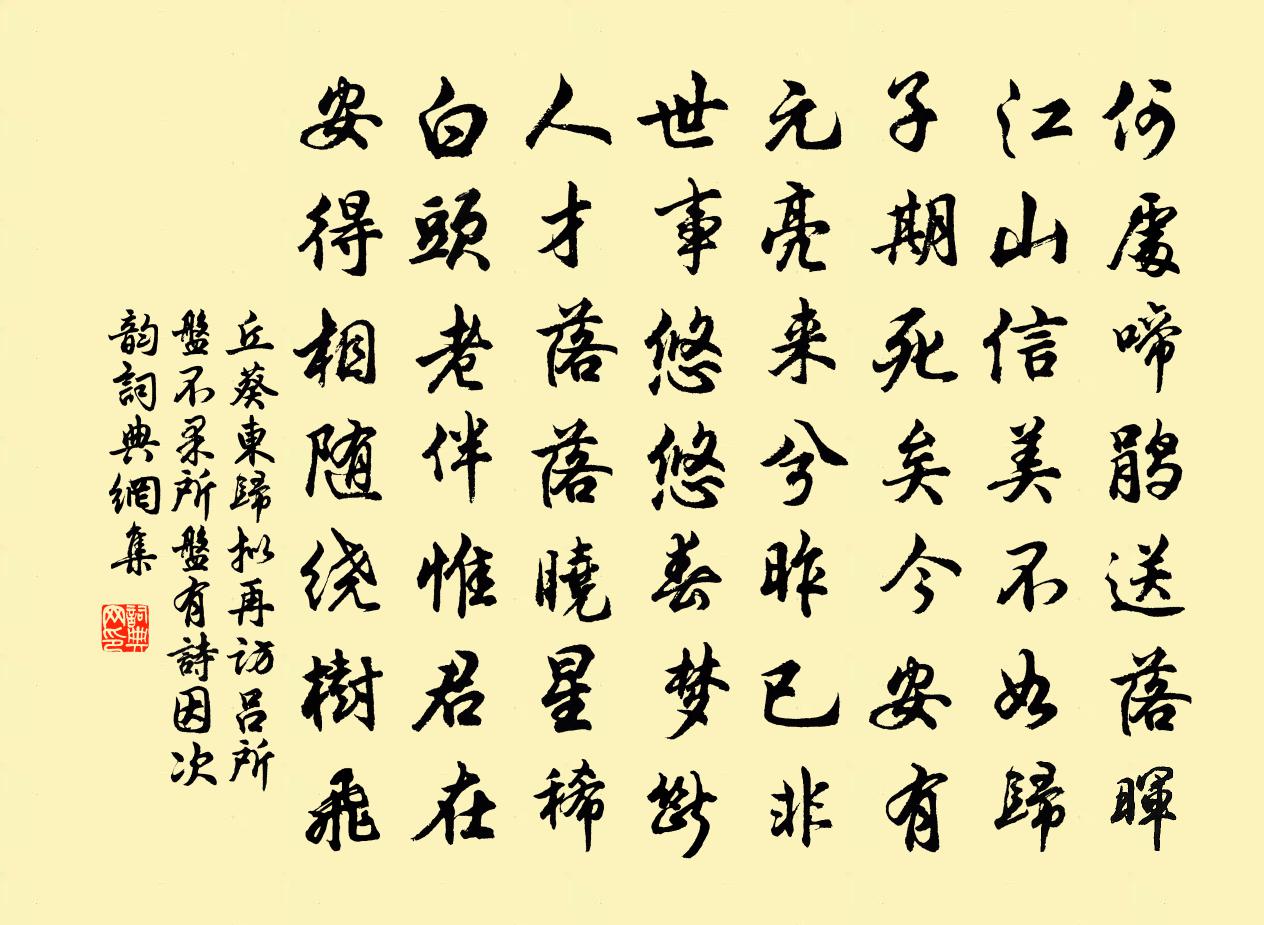 何處啼鹃送落暉
江山信美不如歸
子期死矣今安有
元亮来兮昨已非
世事悠悠春梦断
人才落落曉星稀
白頭老伴惟君在
安得相随绕樹飛
丘葵東歸拟再访吕所
盤不果所盤有詩因次
韵詞典網集
詞典
网印